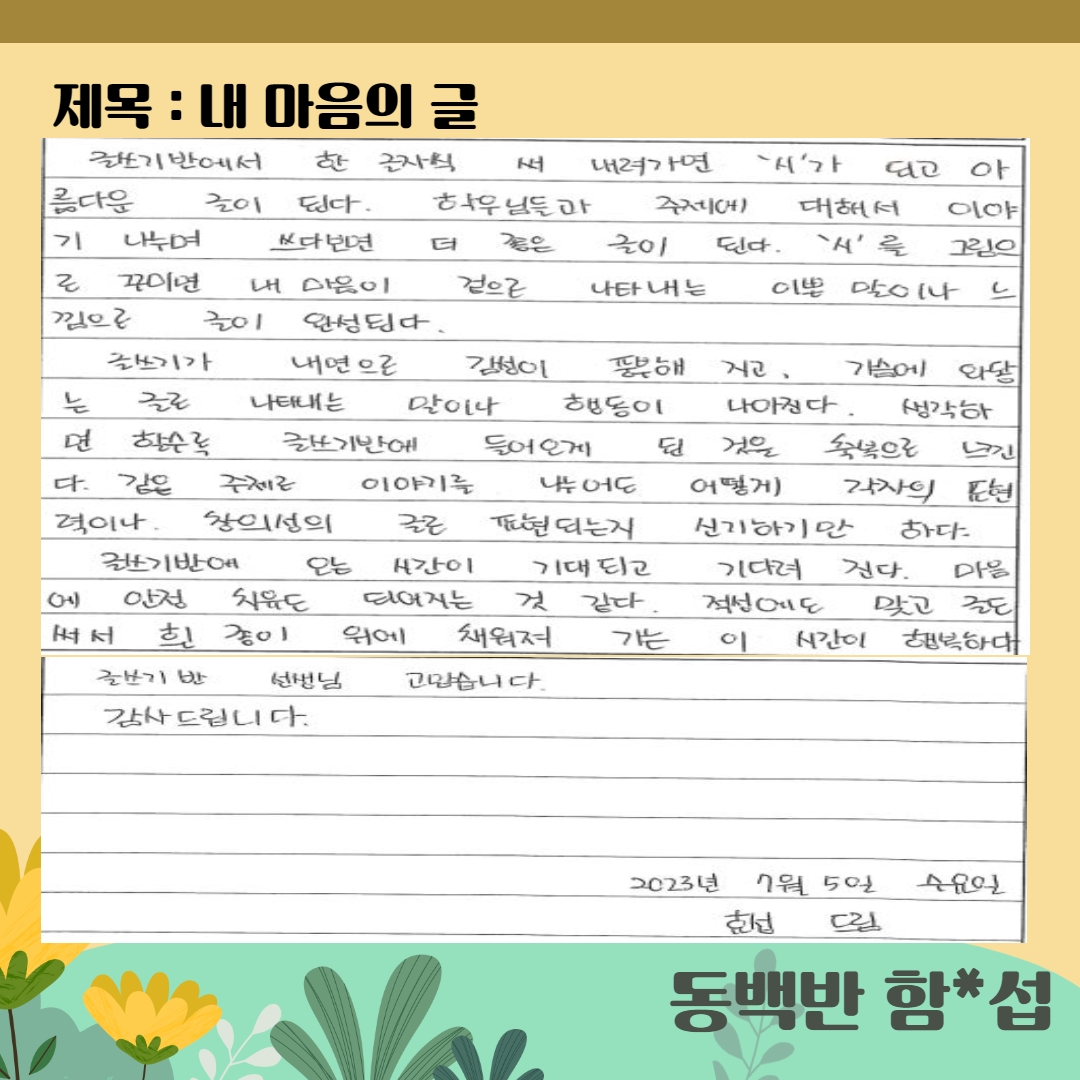 제목 : 내 마음의 글
글쓰기반에서 한 글자씩 써 내려가면 '시'가 되고 아
름다운 글이 된다. 학우님들과 주제에 대해서 이야
기 나누며 쓰다보면 더 좋은 글이 된다. '시'를 그림으
로 꾸미면 내 마음이 겉으로 나타내는 이쁜 말이나 느
낌으로 글이 완성된다.
글쓰기가 내면으로 감성이 풍부해 지고, 가슴에 와닿
는 글로 나타내는 말이나 행동이 나아진다. 생각하
면 할수록 글쓰기반에 들어오게 된 것을 축복으로 느낀
다. 같은 주제로 이야기를 나누어도 어떻게 각자의 표현
력이나. 창의성의 글로 표현되는지 신기하기만 하다.
글쓰기반에 오는 시간이 기대되고 기다려 진다. 마음
에 안정 치유도 되어지는 것 같다. 적성에도 맞고 글도
써서 흰 종이 위에 채워져 가는 이 시간이 행복하다
글쓰기반 선생님 고맙습니다.
감사드립니다.
2023년 7월 5일 수요일
드림
동백반 함*섭